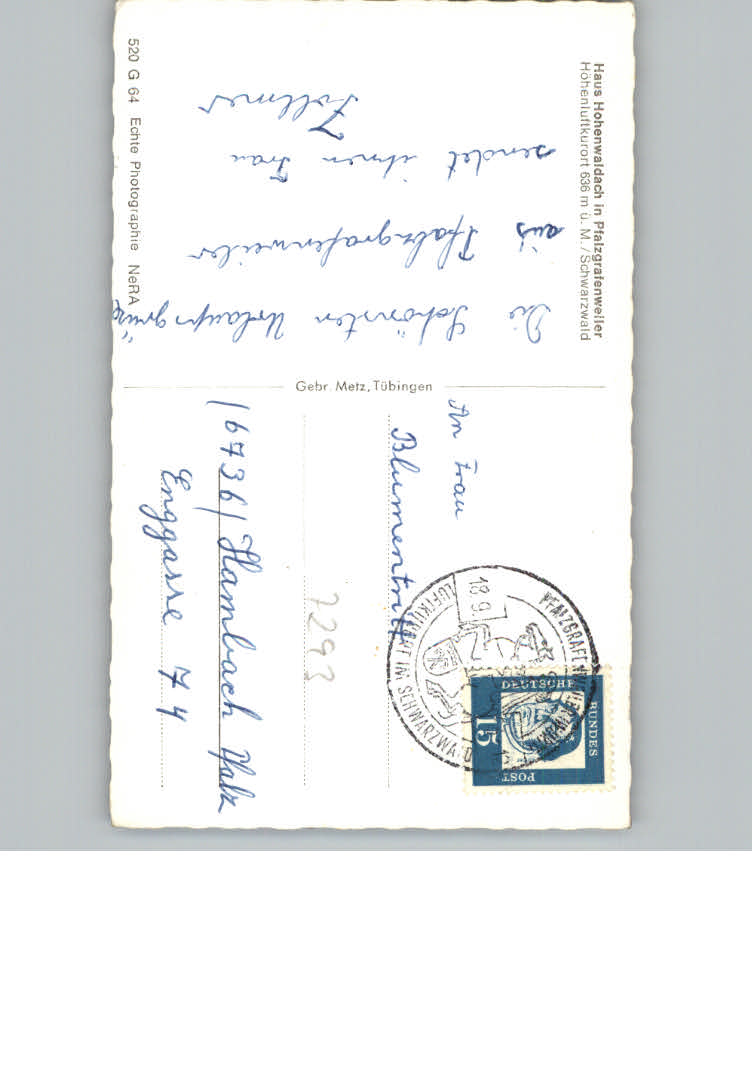 Haus Hohenwaldach in Pfalzgrafenweiler
Höhenluftkurort 636 m ü. M. / Schwarzwald
Die Schönsten Urlaupsgrüße
aus Pfalzgrafenweiler
sendet ihnen Frau
Zollmer
520 G 64 Echte Photographie NeRA
Gebr. Metz, Tübingen
An Frau
Blumentritt
7293
/6736/ Hambach Pfalz
Enggasse 74
PFALZGRAFENWEILER
LUFTKURORT IM SCHWARZWALD
18.9.
DEUTSCHE
BUNDES
POST
15